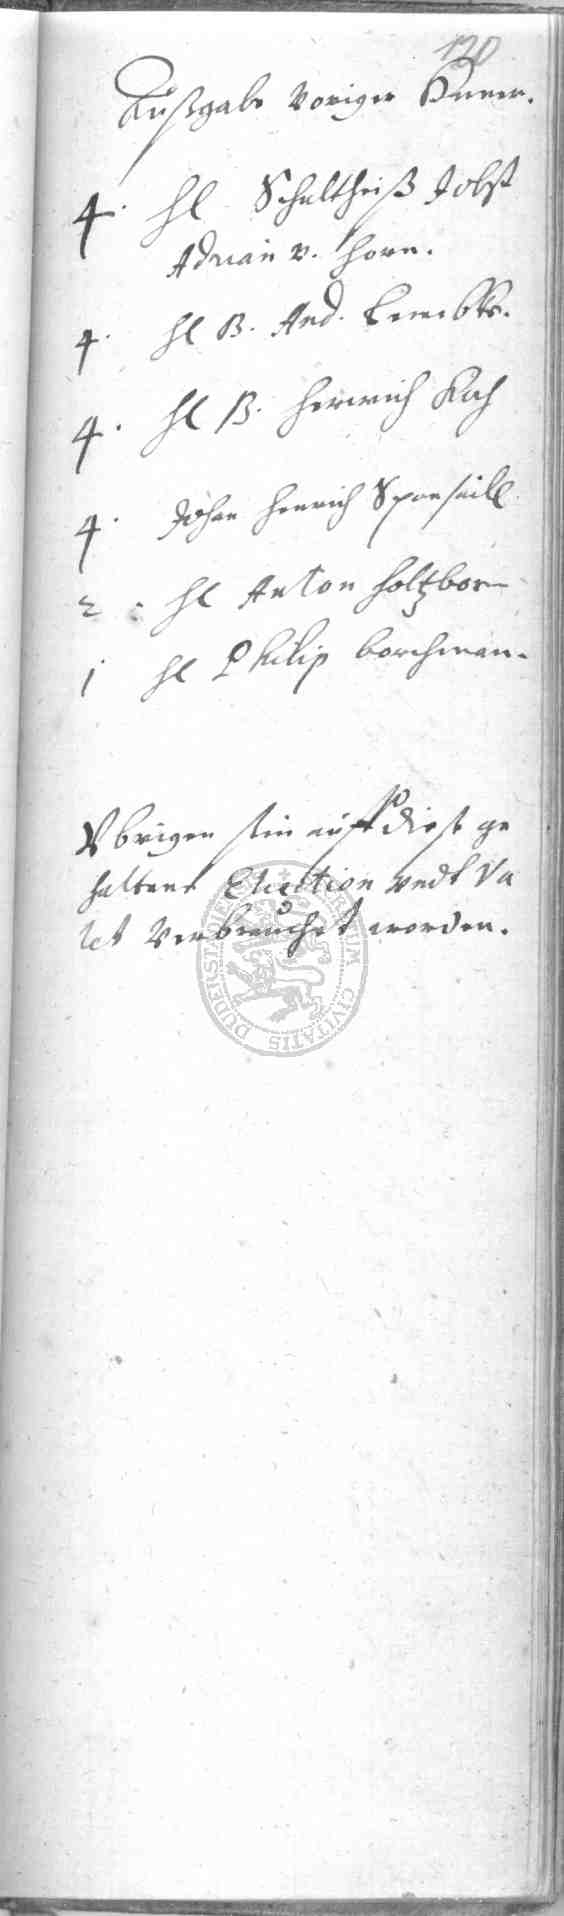 120
Außgabe voriger
4. hl Schultheiß Jobst
Adrian v. Horn.
4. hl B. And.
4. hl B. Henrich Koch
4. Johan Henrich Sponsaill
2. hl Anton Holtzborn
1 hl Philip borchman.
Vbrigen sein auff diese ge
haltene Election vndt Va
let verbrauchet worden.
CIVITATIS DUDERST